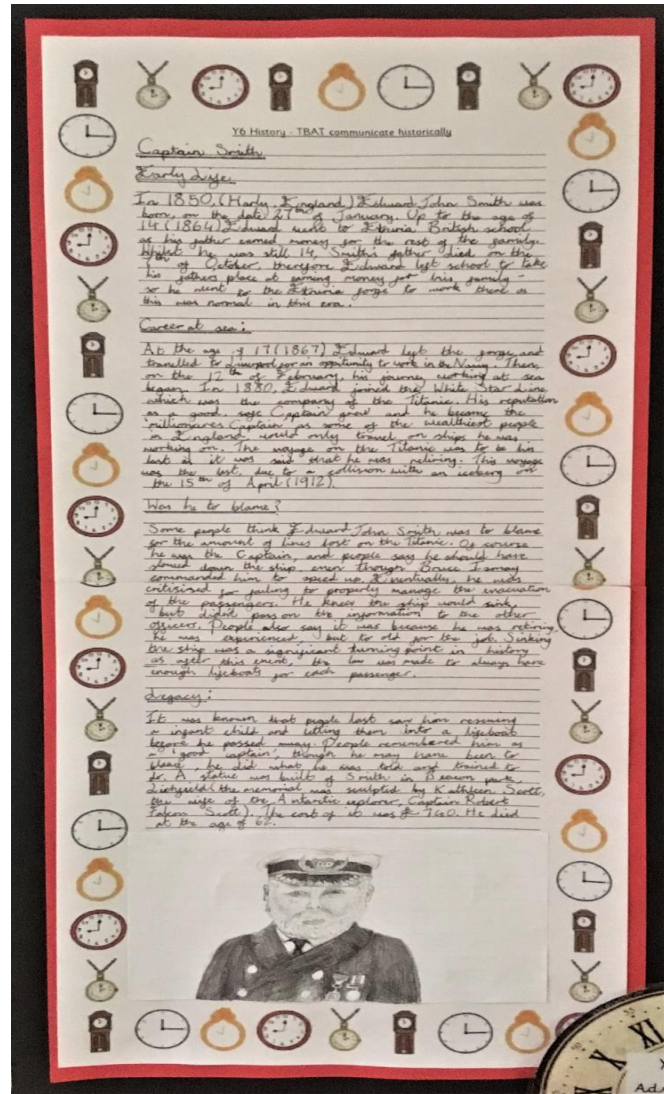 Y6 History - TBAT communicate historically
Captain Smith
Early Life:
In 1850, (Hanly, England) Edward John Smith was
born, on the date) 27th of January. Up to the age of
14 (1864) Edward went to Etruria British school
as his father earned money for the rest of the family.
Whilst he was still 14, Smith's father died on the
of October, therefore Edward left school to take
his fathers place at earning money for his family -
so he went to the Etruria forge to work there as
this was normal in this era.
Career at sea:
At the age of 17 (1867) Edward left the forge and
travelled to Liverpool for an opportunity to work in the Navy. Then,
on the 12th of February, his journey working at sea
began. In 1880, Edward joined the White Star Line
which was the company of the Titanic. His reputation
as a good, safe Captain grew and he became the
millionaires Captain as some of the wealthiest people
in England would only travel on ships he was
working on. The voyage on the Titanic was to be his
last as it was said that he was retiring. This voyage
was the last, due to a collision with an iceberg on
the 15th of April (1912).
Was he to blame?
Some people think Edward John Smith was to blame
for the amount of lives lost on the Titanic. Of course
he was the Captain, and people say he should have
slowed down the ship, even though Bruce Ismay
commanded him to speed up. Eventually, he was
critisised for failing to properly manage the evacuation
of the passengers. He knew the ship would sink,
but didnt pass on the information to the other
officers. People also say it was because he was retiring,
he was experienced, but to old for the job. Sinking
the ship was a significant turning point in history
as after this event, the law was made to always have
enough lifeboats for each passenger.
Legacy:
It was known that people last saw him rescuing
a infant child and letting them into a lifeboat
before he passed away. People remembered him as
a 'good captain' though he may have been to
blame, he did what he was told and trained to
do. A statue was built of Smith in Beacon park,
Lichfield (the memorial was sculpted by Kathleen Scott,
the wife of the Antarctic explorer, Captain Robert
Falcon Scott). The cost of it was £740. He died
at the age of 62.
XI
X
IX
X
Ad